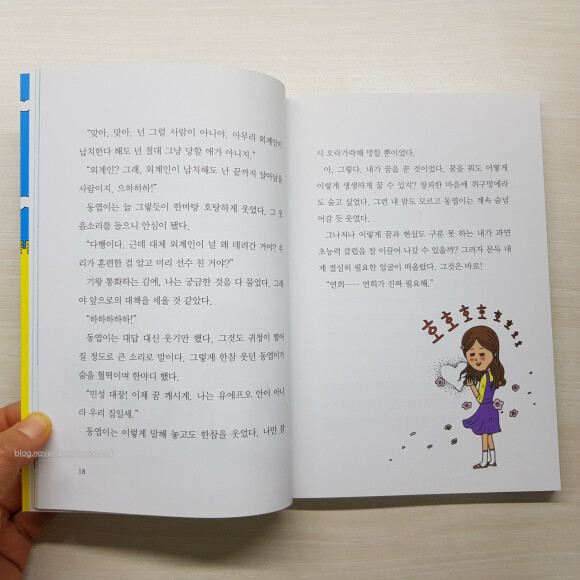 "맞아, 맞아. 넌 그럴 사람이 아니야. 아무리 외계인이
납치한다 해도 넌 절대 그냥 당할 애가 아니지."
"외계인? 그래, 외계인이 납치해도 난 끝까지 살아남을
사람이지. 으하하하!"
동엽이는 늘 그렇듯이 한바탕 호탕하게 웃었다. 그 웃
음소리를 들으니 안심이 됐다.
"다행이다. 근데 대체 외계인이 널 왜 데려간 거야? 우
리가 훈련한 걸 알고 미리 선수 친 거야?"
기왕 통화하는 김에, 나는 궁금한 것을 다 물었다. 그래
야 앞으로의 대책을 세울 것 같았다.
"하하하하하!"
동엽이는 대답 대신 웃기만 했다. 그것도 귀청이 떨어
질 정도로 큰 소리로 말이다. 그렇게 한참 웃던 동엽이가
숨을 헐떡이며 한마디 했다.
"민성 대장! 이제 꿈 깨시게. 나는 유에프오 안이 아니
라 우리 집일세."
동엽이는 이렇게 말해 놓고도 한참을 웃었다. 나만 잠
18
시 오락가락해 멍할 뿐이었다.
아, 그렇다. 내가 꿈을 꾼 것이었다. 꿈을 꿔도 어떻게
이렇게 생생하게 꿀 수 있지? 창피한 마음에 쥐구멍에라
도 숨고 싶었다. 그런 내 맘도 모르고 동엽이는 계속 숨넘
어갈 듯 웃었다.
그나저나 이렇게 꿈과 현실도 구분 못 하는 내가 과연
초능력 클럽을 잘 이끌어 나갈 수 있을까? 그러자 문득 내
게 절실히 필요한 얼굴이 떠올랐다. 그것은 바로!
"연희…… 연희가 진짜 필요해."
호호호호호호호호